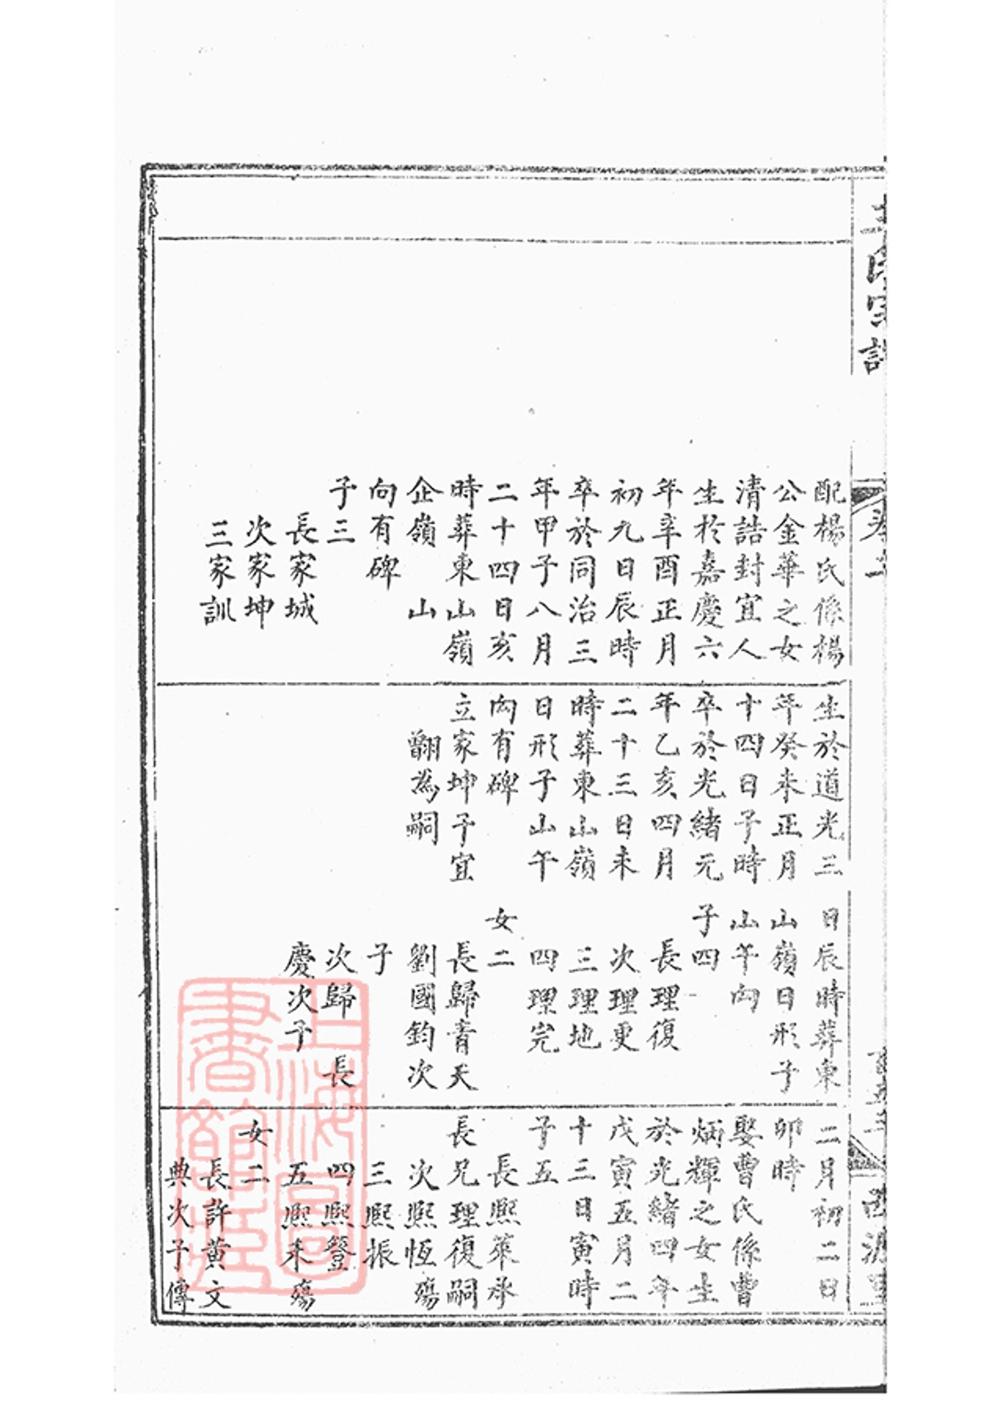 氏宗譜
配楊氏係楊
公金華之女
清誥封宜人
生於嘉慶六
年辛酉正月
初九日辰時
卒於同治三
年甲子八月
二十四日亥
時葬東山嶺
企嶺 山
向有碑
子三
長家城
次家坤
三家訓
生於道光三
年癸未正月
十四日子時
卒於光緒元
年乙亥四月
二十三日未
時葬東山嶺
日形子山午
向有碑
立家坤子宜
翻為嗣
日辰時葬東
山嶺日形子
山午向
子四
長理復
次理更
三理地
四理完
女二
長歸青天
劉國鈞次
子
次歸 長
慶次子
二月初二日
卯時
娶曹氏係曹
炳輝之女生
於光緒四年
戊寅五月二
十三日寅時
子五
長熙萊承
長兄理復嗣
次熙恆殤
三熙振
四熙簦
五熙來殤
女二
長許黃文
典次子傳
上海圖書館藏